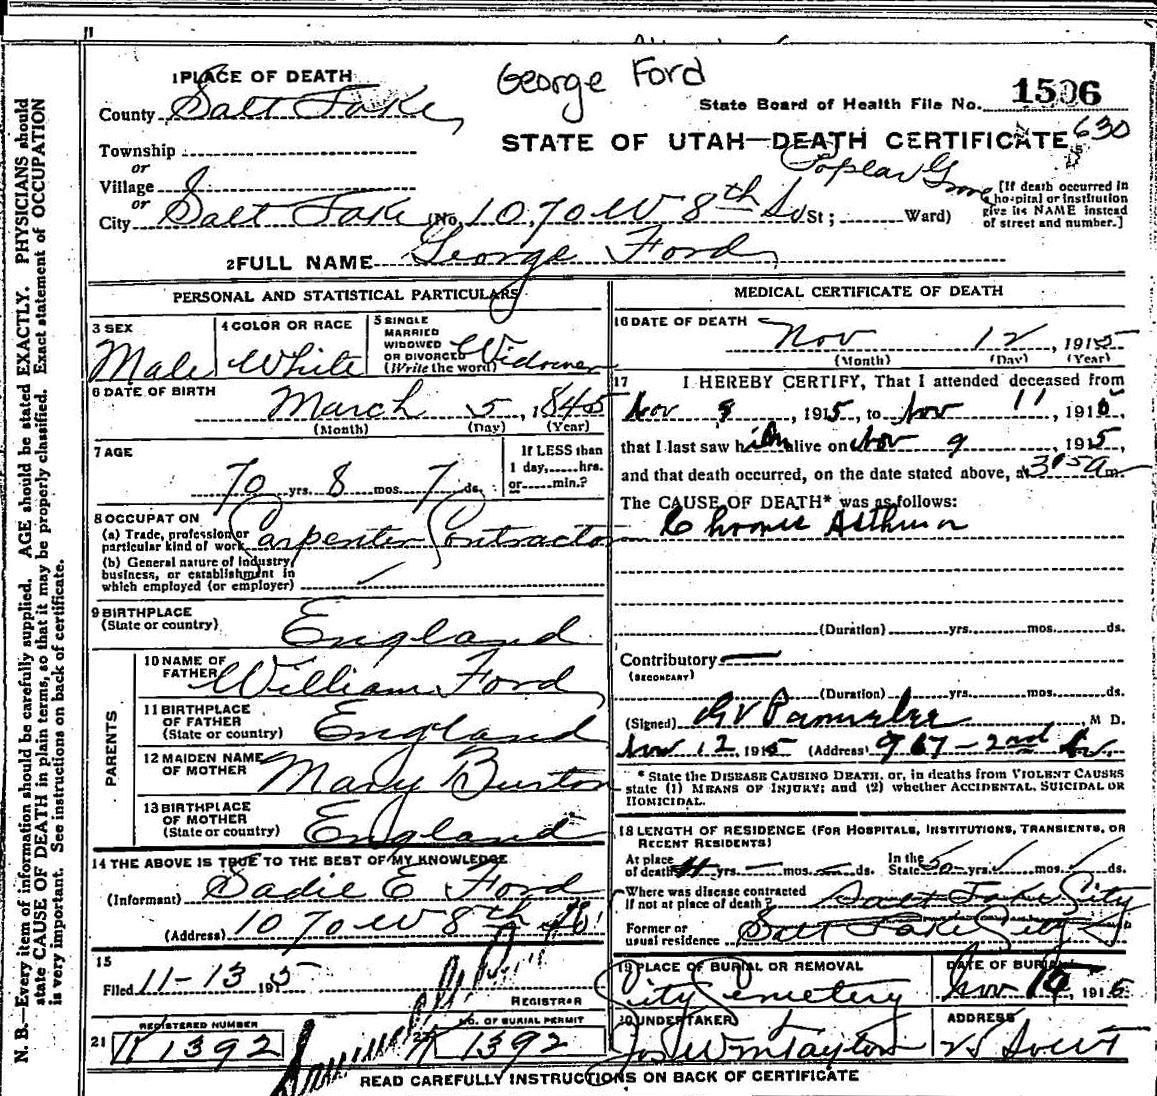 George Ford
1 PLACE OF DEATH
County Salt Lake
State Board of Health File No. 1506
STATE OF UTAH—DEATH CERTIFICATE 630
Township
or
Village
Poplar Grove
or
City Salt Lake (No. 1070 W 8th So St; Ward)
[If death occurred in
a hospital or institution
give its NAME instead
of street and number.]
2 FULL NAME George Ford
PERSONAL AND STATISTICAL PARTICULARS
3 SEX
Male
4 COLOR OR RACE
White
5 SINGLE
MARRIED
WIDOWED
OR DIVORCED
(Write the word) Widower
6 DATE OF BIRTH
March 5, 1845
(Month) (Day) (Year)
7 AGE
70 yrs. 8 mos. 7 ds.
If LESS than
1 day,......hrs.
or......min.?
8 OCCUPATION
(a) Trade, profession or
particular kind of work Carpenter Contractor
(b) General nature of industry,
business, or establishment in
which employed (or employer)
9 BIRTHPLACE
(State or country) England
PARENTS
10 NAME OF
FATHER William Ford
11 BIRTHPLACE
OF FATHER
(State or country) England
12 MAIDEN NAME
OF MOTHER Mary Burton
13 BIRTHPLACE
OF MOTHER
(State or country) England
14 THE ABOVE IS TRUE TO THE BEST OF MY KNOWLEDGE
(Informant) Sadie E Ford
(Address) 1070 W 8th So
15
Filed 11-13 1915
REGISTRAR
REGISTERED NUMBER
21 K 1392
NO. OF BURIAL PERMIT
K 1392
MEDICAL CERTIFICATE OF DEATH
16 DATE OF DEATH
Nov 12, 1915
(Month) (Day) (Year)
17 I HEREBY CERTIFY, That I attended deceased from
Nov 9, 1915, to Nov 11, 1915,
that I last saw him alive on Nov 9 1915,
and that death occurred, on the date stated above, at 3 15 a m.
The CAUSE OF DEATH* was as follows:
Chronic Asthma
(Duration) yrs. mos. ds.
Contributory
(SECONDARY)
(Duration) yrs. mos. ds.
(Signed) , M D.
Nov 12, 1915 (Address) 967 - 2nd Av.
* State the DISEASE CAUSING DEATH, or, in deaths from VIOLENT CAUSES
state (1) MEANS OF INJURY; and (2) whether ACCIDENTAL, SUICIDAL OR
HOMICIDAL.
18 LENGTH OF RESIDENCE (FOR HOSPITALS, INSTITUTIONS, TRANSIENTS, OR
RECENT RESIDENTS)
At place
of death yrs. mos. ds.
In the
State 50 yrs. mos. ds.
Where was disease contracted
if not at place of death? Salt Lake City
Former or
usual residence Salt Lake City
19 PLACE OF BURIAL OR REMOVAL
City Cemetery
DATE OF BURIAL
Nov 1915
20 UNDERTAKER
Jos Wm Taylor
ADDRESS
READ CAREFULLY INSTRUCTIONS ON BACK OF CERTIFICATE
N. B.—Every item of information should be carefully supplied. AGE should be stated EXACTLY. PHYSICIANS should
state CAUSE OF DEATH in plain terms, so that it may be properly classified. Exact statement of OCCUPATION
is very important. See instructions on back of certificate.